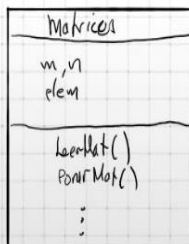 Matrices
m, n
elem
LeerMat()
PonerMat()
⋮